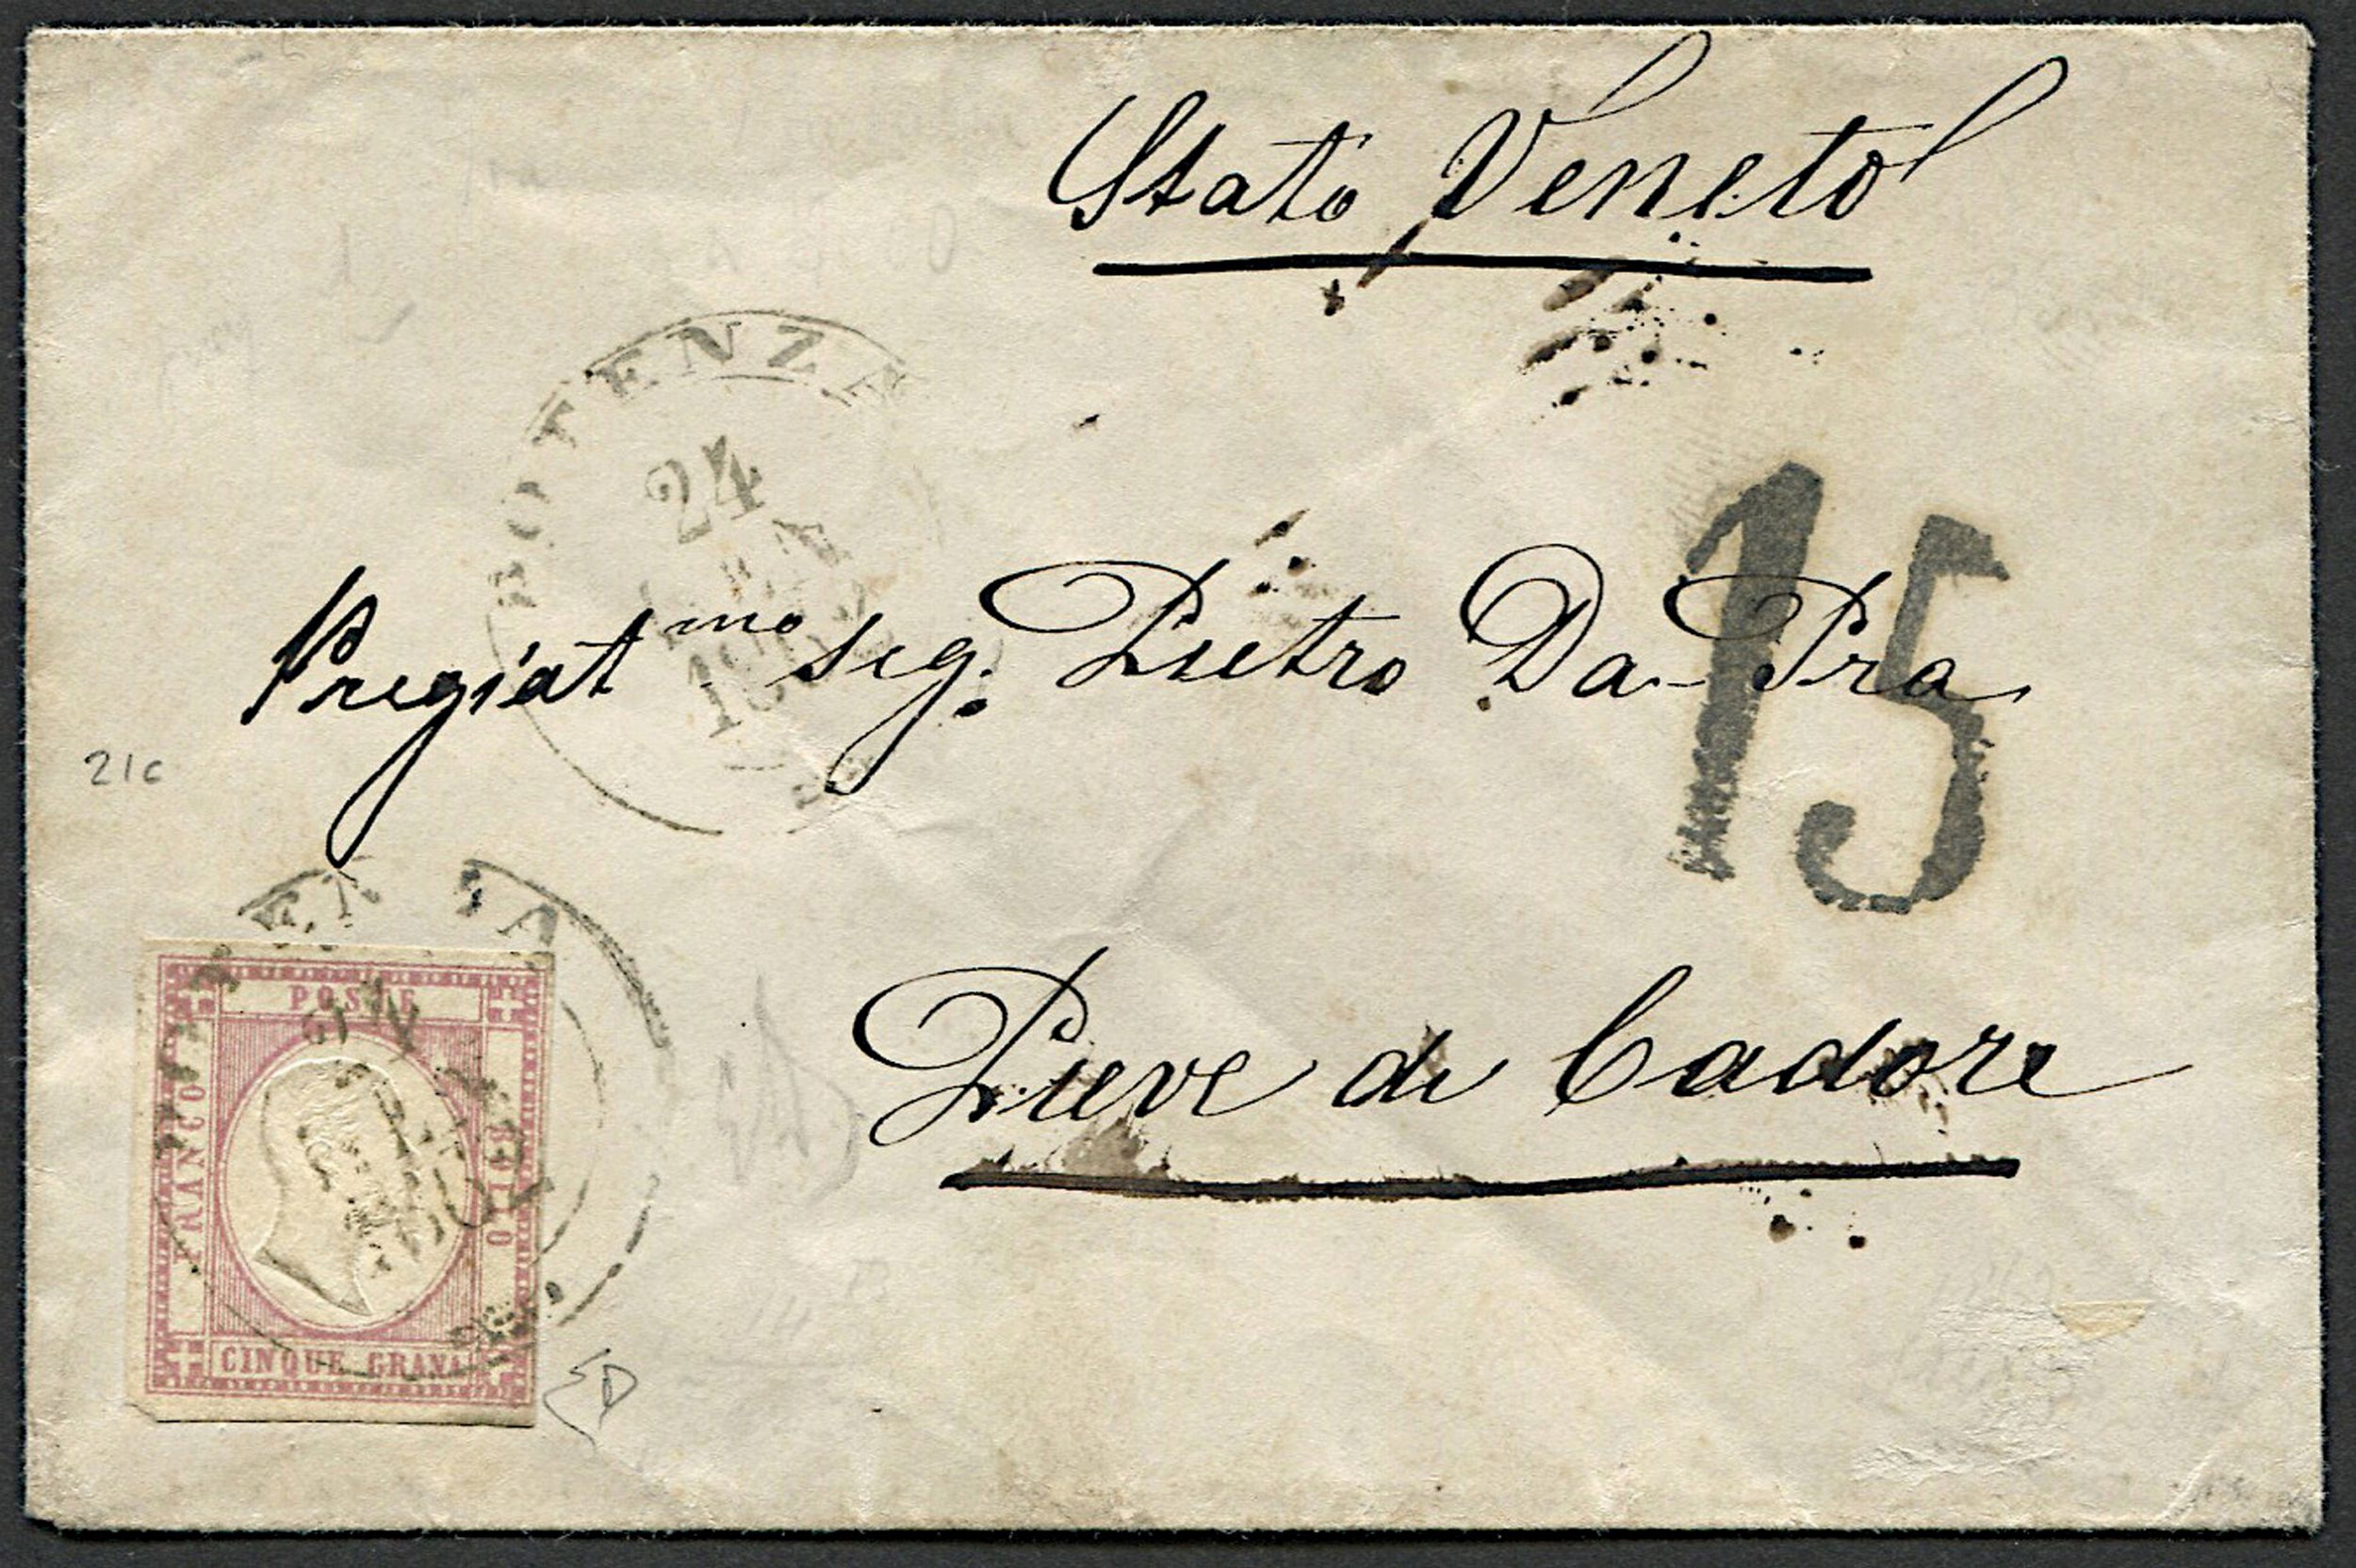 Stato Veneto
POTENZA
24
15
Pregiat mo sig. Pietro Da-Pra
21c
Pieve di Cadore
POSTE
FRANCO
BOLLO
CINQUE GRANA